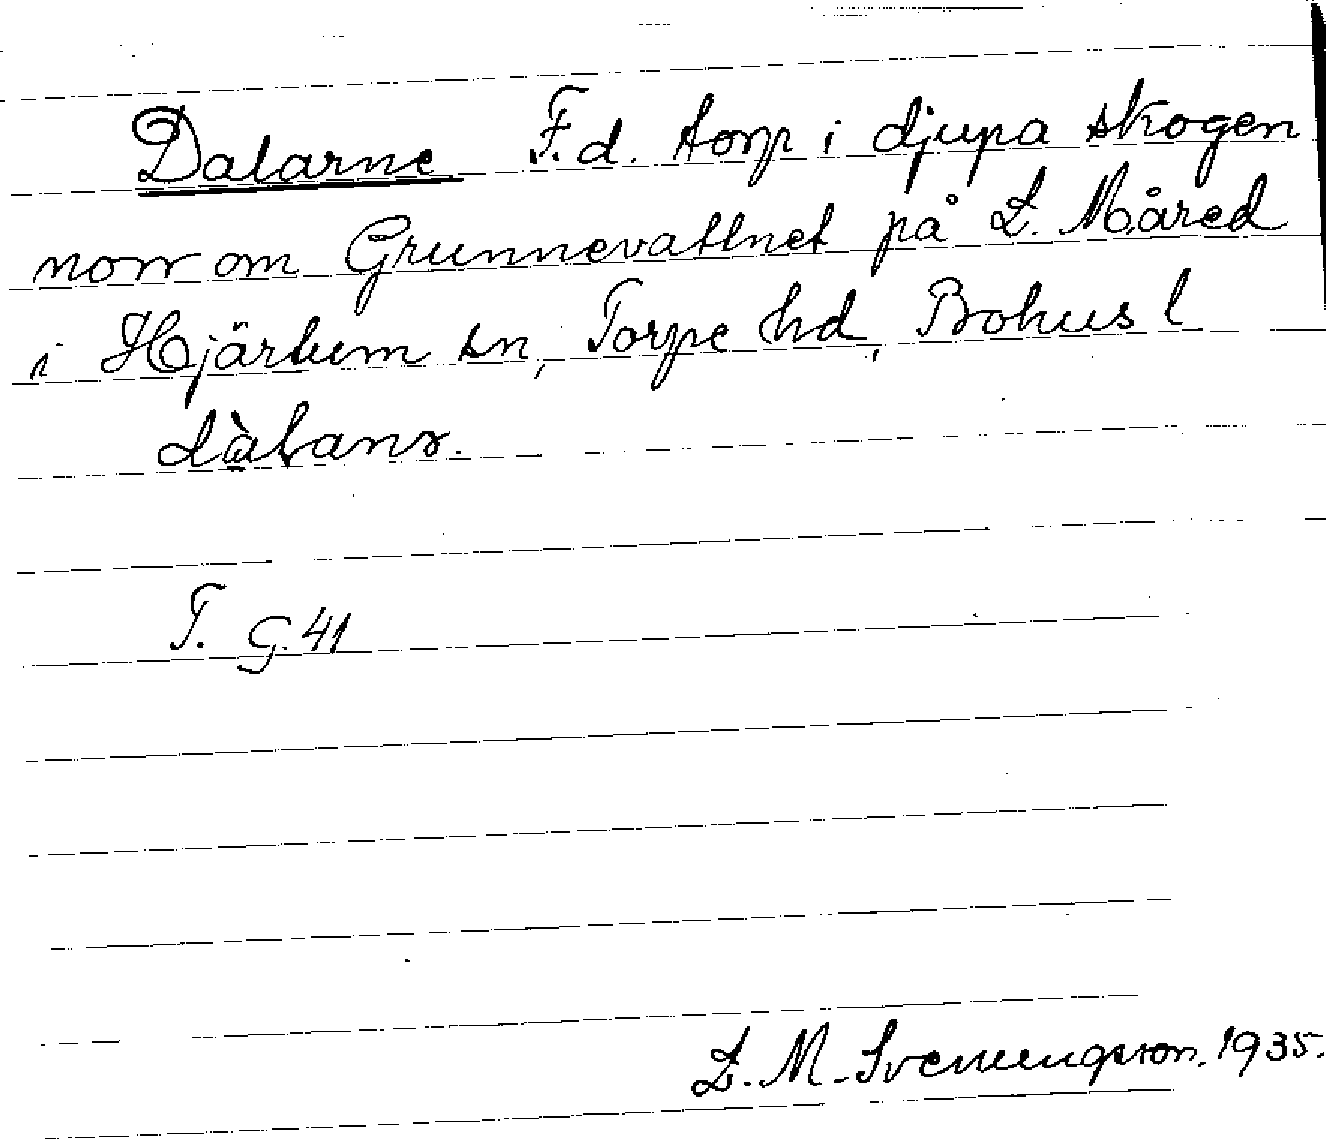 Dalarne F.d. torp i djupa skogen
norr om Grunnevattnet på L. Måred
i Hjärtum sn, Torpe hd, Bohus l
dàlanr.
T. G. 41
L. M. Svenungsson. 1935.